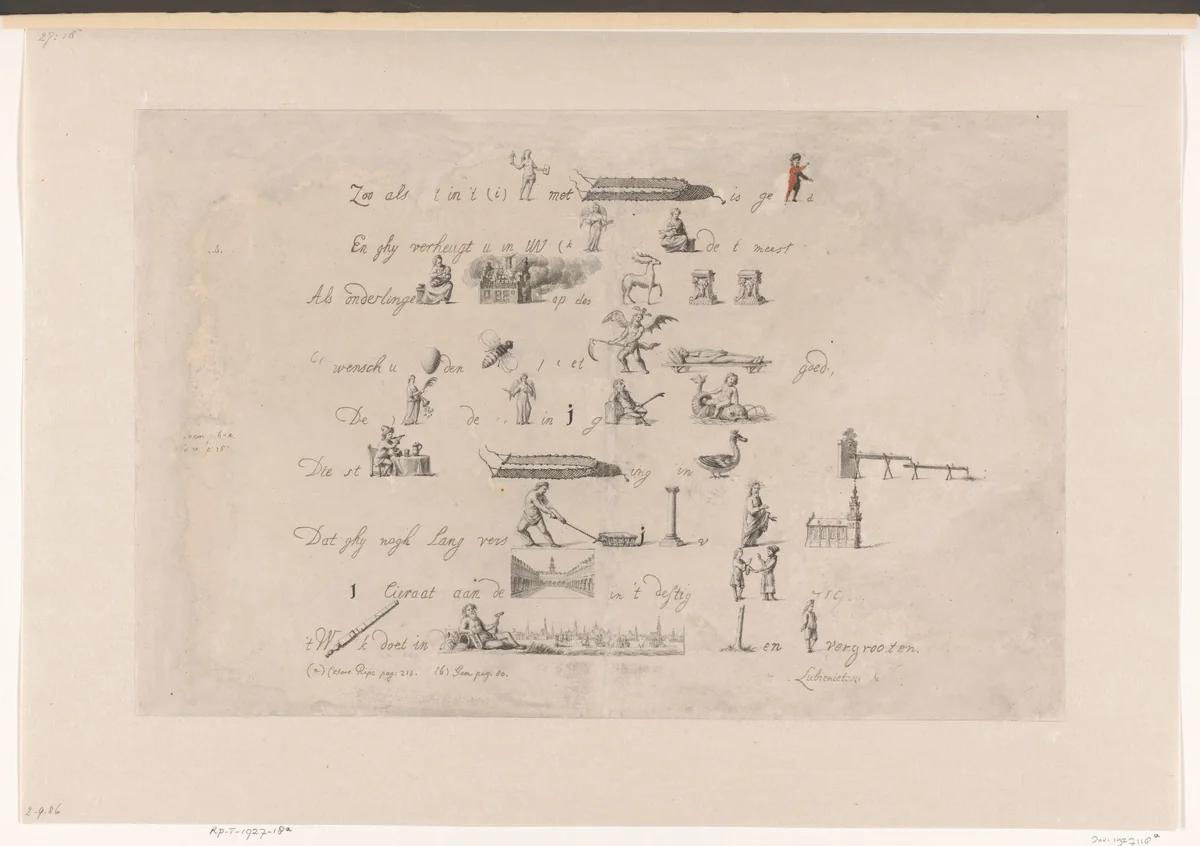 27:18
Zoo als t in 't (i) met is ge d
En ghy verheugt u in UW de t meest
Als onderlinge op des
wensch u den et goed,
De de in j g
Die st ing in
Dat ghy nogh Lang vers j v
J Cieraat aan de in 't deftig
't W k doet in en vergrooten.
Ripa pag: 213. (b) pag: 80.
2-9.86
RP-T-1927-18a